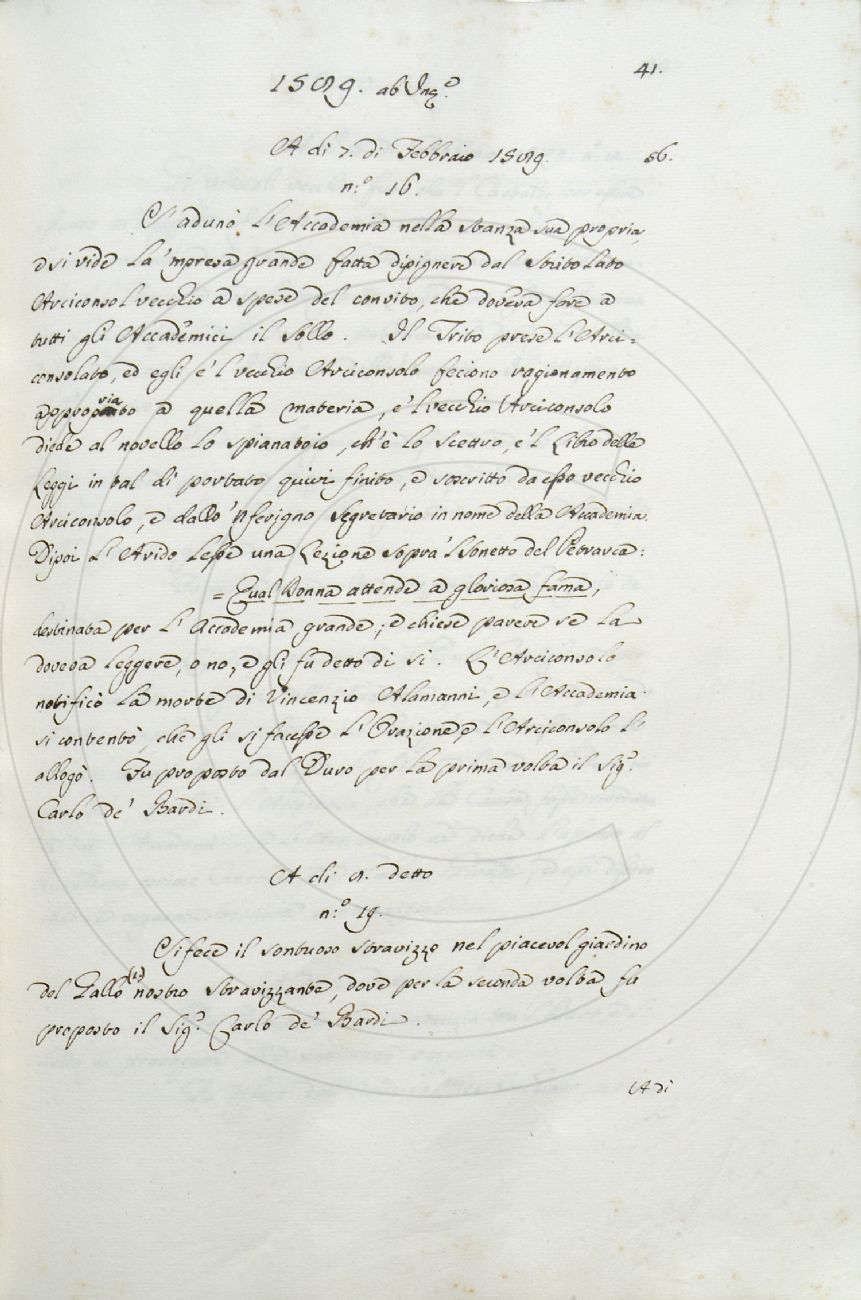 41.
1589. ab Inc.º
A di 7. di Febbraio 1589. 56.
n.º 16.
S'adunò l'Accademia nella stanza sua propria,
e si vide la 'mpresa grande fatta dipignere dal Stritolato
Arciconsol vecchio a spese del convito, che doveva fare a
tutti gli Accademici il Sollo. Il Trito prese l'Arci-
consolato, ed egli e 'l vecchio Arciconsolo feciono ragionamento
appropriato a quella materia, e 'l vecchio Arciconsolo
diede al novello lo spianatoio, ch'è lo scettro, e 'l Libro delle
Leggi in tal dì portato quivi finito, e soscritto da esso vecchio
Arciconsolo, e dallo 'nferigno Segretario in nome della Accademia.
Dipoi l'Arido lesse una Lezione sopra 'l Sonetto del Petrarca:
= Qual Donna attende a gloriosa fama,
destinata per l'Accademia grande; e chiese parere se la
doveva leggere, o no, e gli fu detto di sì. L'Arciconsolo
notificò la morte di Vincenzio Alamanni, e l'Accademia
si contentò, che gli si facesse l'Orazione, e l'Arciconsolo l'
allogò. Fu proposto dal Duro per la prima volta il Sig.r
Carlo de' Bardi.
A di 8. detto
n.º 19.
Si fece il sontuoso stravizzo nel piacevol giardino
del Gallo (1) nostro stravizzante, dove per la seconda volta fu
proposto il Sig.r Carlo de' Bardi.
A di